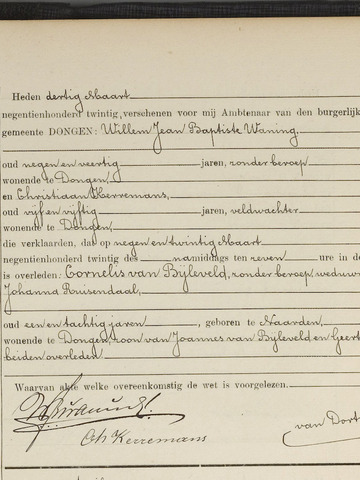 Heden dertig Maart
negentienhonderd twintig, verschenen voor mij Ambtenaar van den burgerlijk
gemeente DONGEN: Willem Jean Baptiste Waning,
oud negen en veertig jaren, zonder beroep
wonende te Dongen,
en Christiaan Kerremans,
oud vijf en vijftig jaren, veldwachter
wonende te Dongen,
die verklaarden, dat op negen en twintig Maart
negentienhonderd twintig des namiddags ten zeven ure in de
is overleden: Cornelis van Bijleveld, zonder beroep, weduw
Johanna Ruisendaal,
oud een en tachtig jaren, geboren te Naarden,
wonende te Dongen, zoon van Joannes van Bijleveld en Geert
beiden overleden.
Waarvan akte welke overeenkomstig de wet is voorgelezen.
Ch Kerremans
van Dort